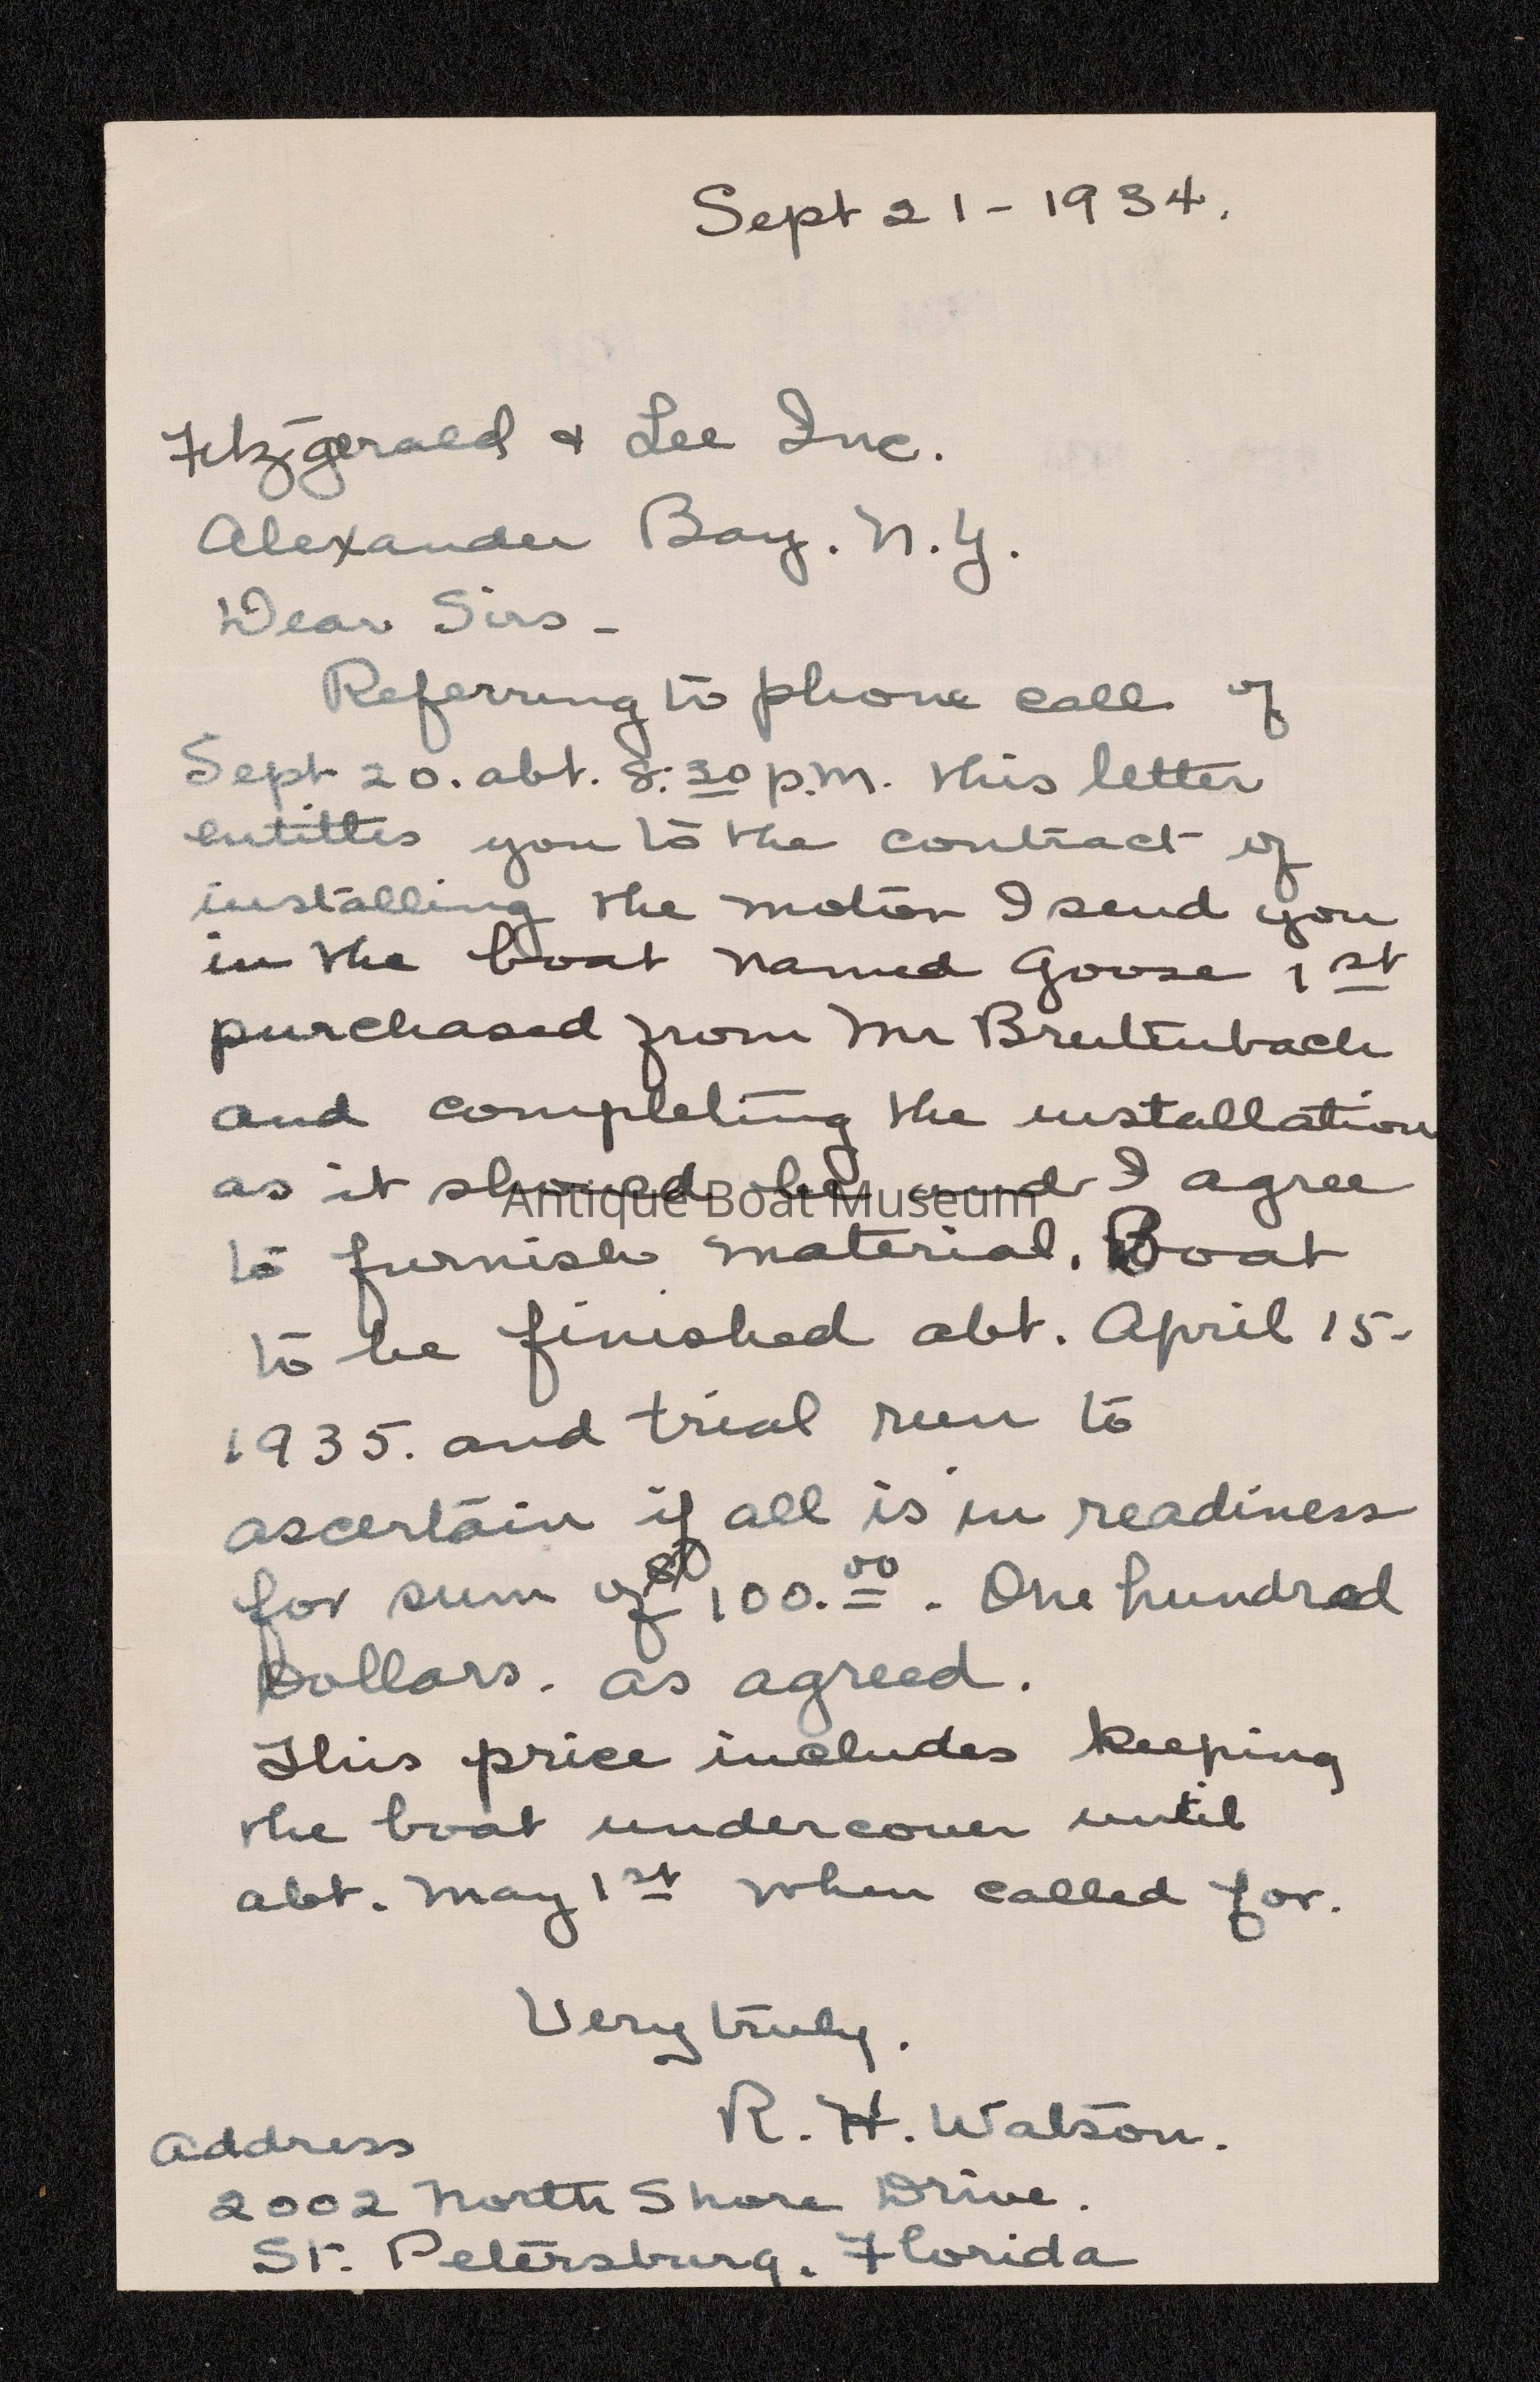 Sept 21 - 1934.
Fitzgerald & Lee Inc.
Alexander Bay. N.Y.
Dear Sirs -
Referring to phone call of
Sept 20. abt. 8:30 p.m. this letter
entittles you to the contract of
installing the motor I send you
in the boat named Goose 1st
purchased from Mr Breitenbach
and completing the installation
as it should be and I agree
Antique Boat Museum
to furnish material. Boat
to be finished abt. April 15-
1935. and trial run to
ascertain if all is in readiness
for sum of $100.00. One hundred
Dollars. as agreed.
This price includes keeping
the boat undercover until
abt. May 1st when called for.
Very truly.
R. H. Watson.
Address
2002 North Shore Drive.
St. Petersburg. Florida